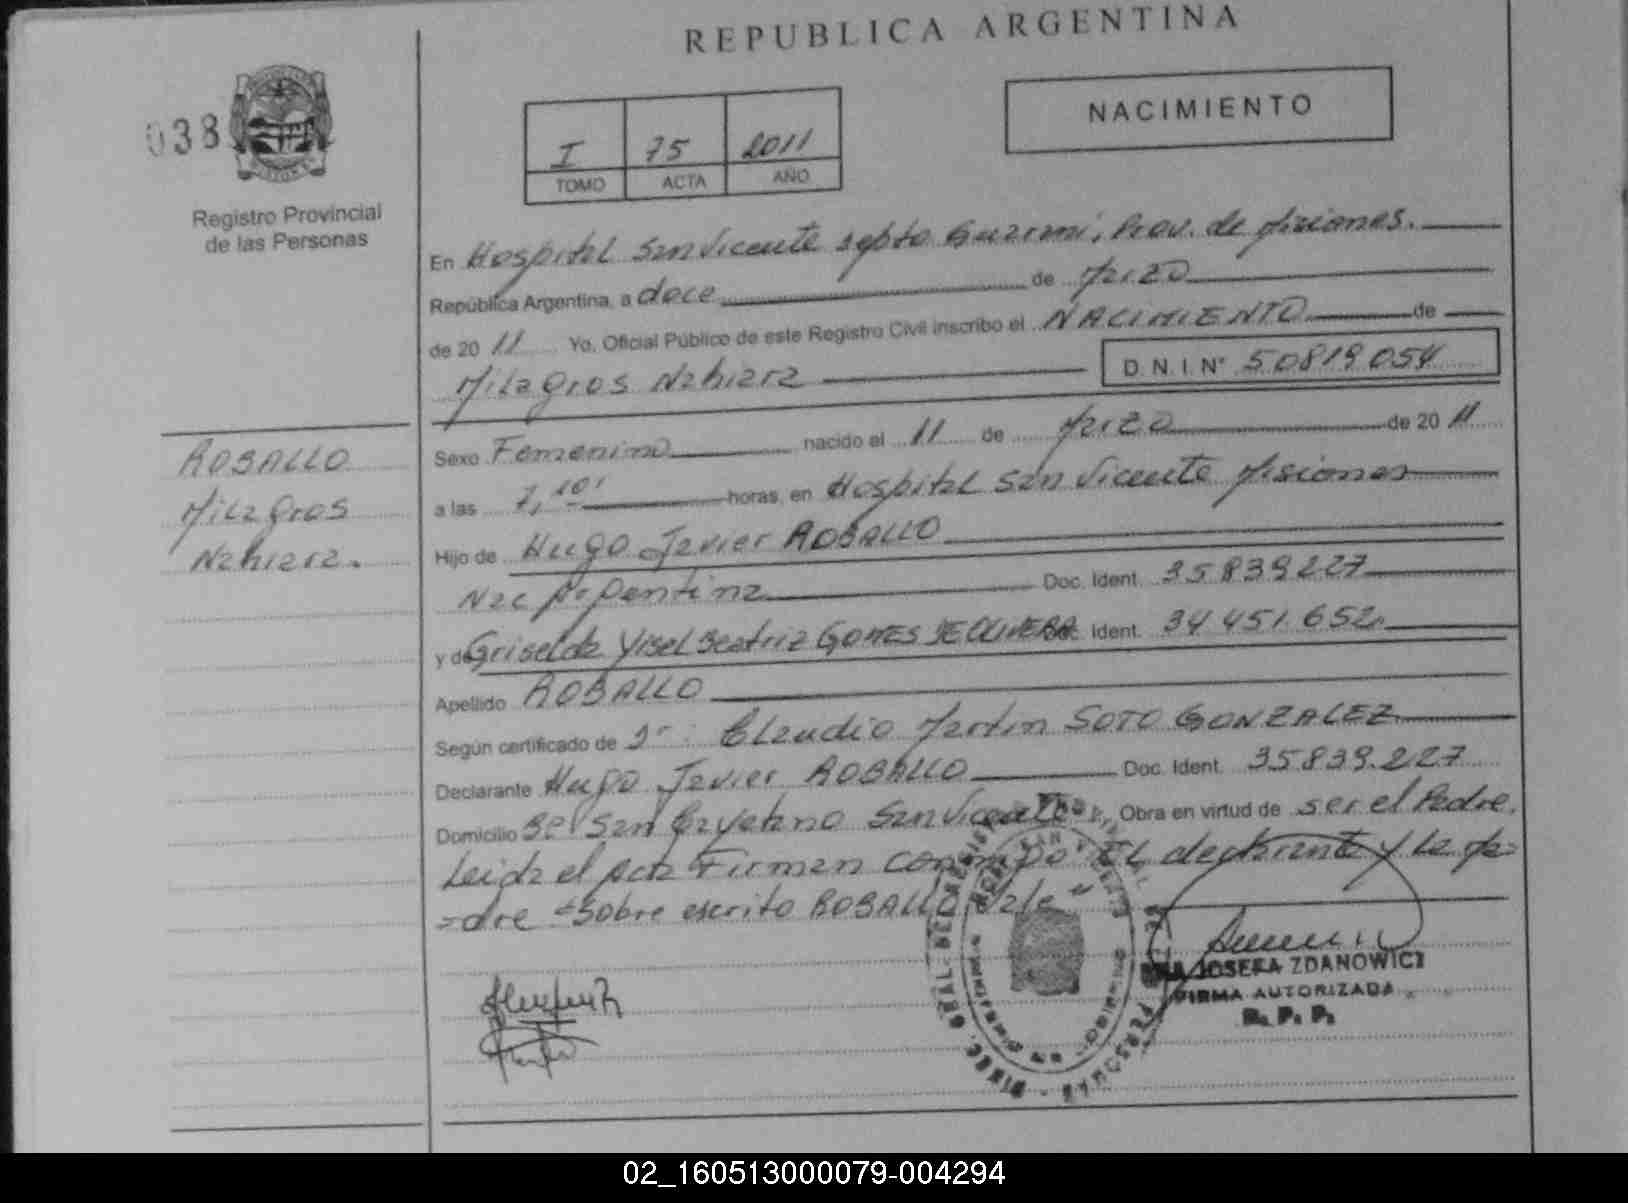 REPUBLICA ARGENTINA
038
NACIMIENTO
I 75 2011
TOMO ACTA AÑO
Registro Provincial
de las Personas
En Hospital San Vicente Dpto Guarani, Prov. de Misiones.
República Argentina, a doce de Marzo
de 20 11 Yo, Oficial Público de este Registro Civil inscribo el NACIMIENTO de
Milagros Nahiara D. N. I. N° 50819054
ROBALLO
Milagros
Nahiara.
Sexo Femenino nacido el 11 de Marzo de 20 11
a las 7,10' horas, en Hospital San Vicente Misiones
Hijo de Hugo Javier ROBALLO
Nac Argentina Doc. Ident. 35839227
y de Griselda Yisel Beatriz GOMES DE OLIVERA Doc. Ident. 34451.652
Apellido ROBALLO
Según certificado de Dr: Claudio Martin SOTO GONZALEZ
Declarante Hugo Javier ROBALLO Doc. Ident. 35.839.227
Domicilio Bº San Cayetano San Vicente Obra en virtud de ser el Padre.
Leida el Acta Firman conmigo EL declarante y La Ma=
=dre =Sobre escrito ROBALLO Vale"
JOSEFA ZDANOWICZ
FIRMA AUTORIZADA
R. P. P.
02_160513000079-004294